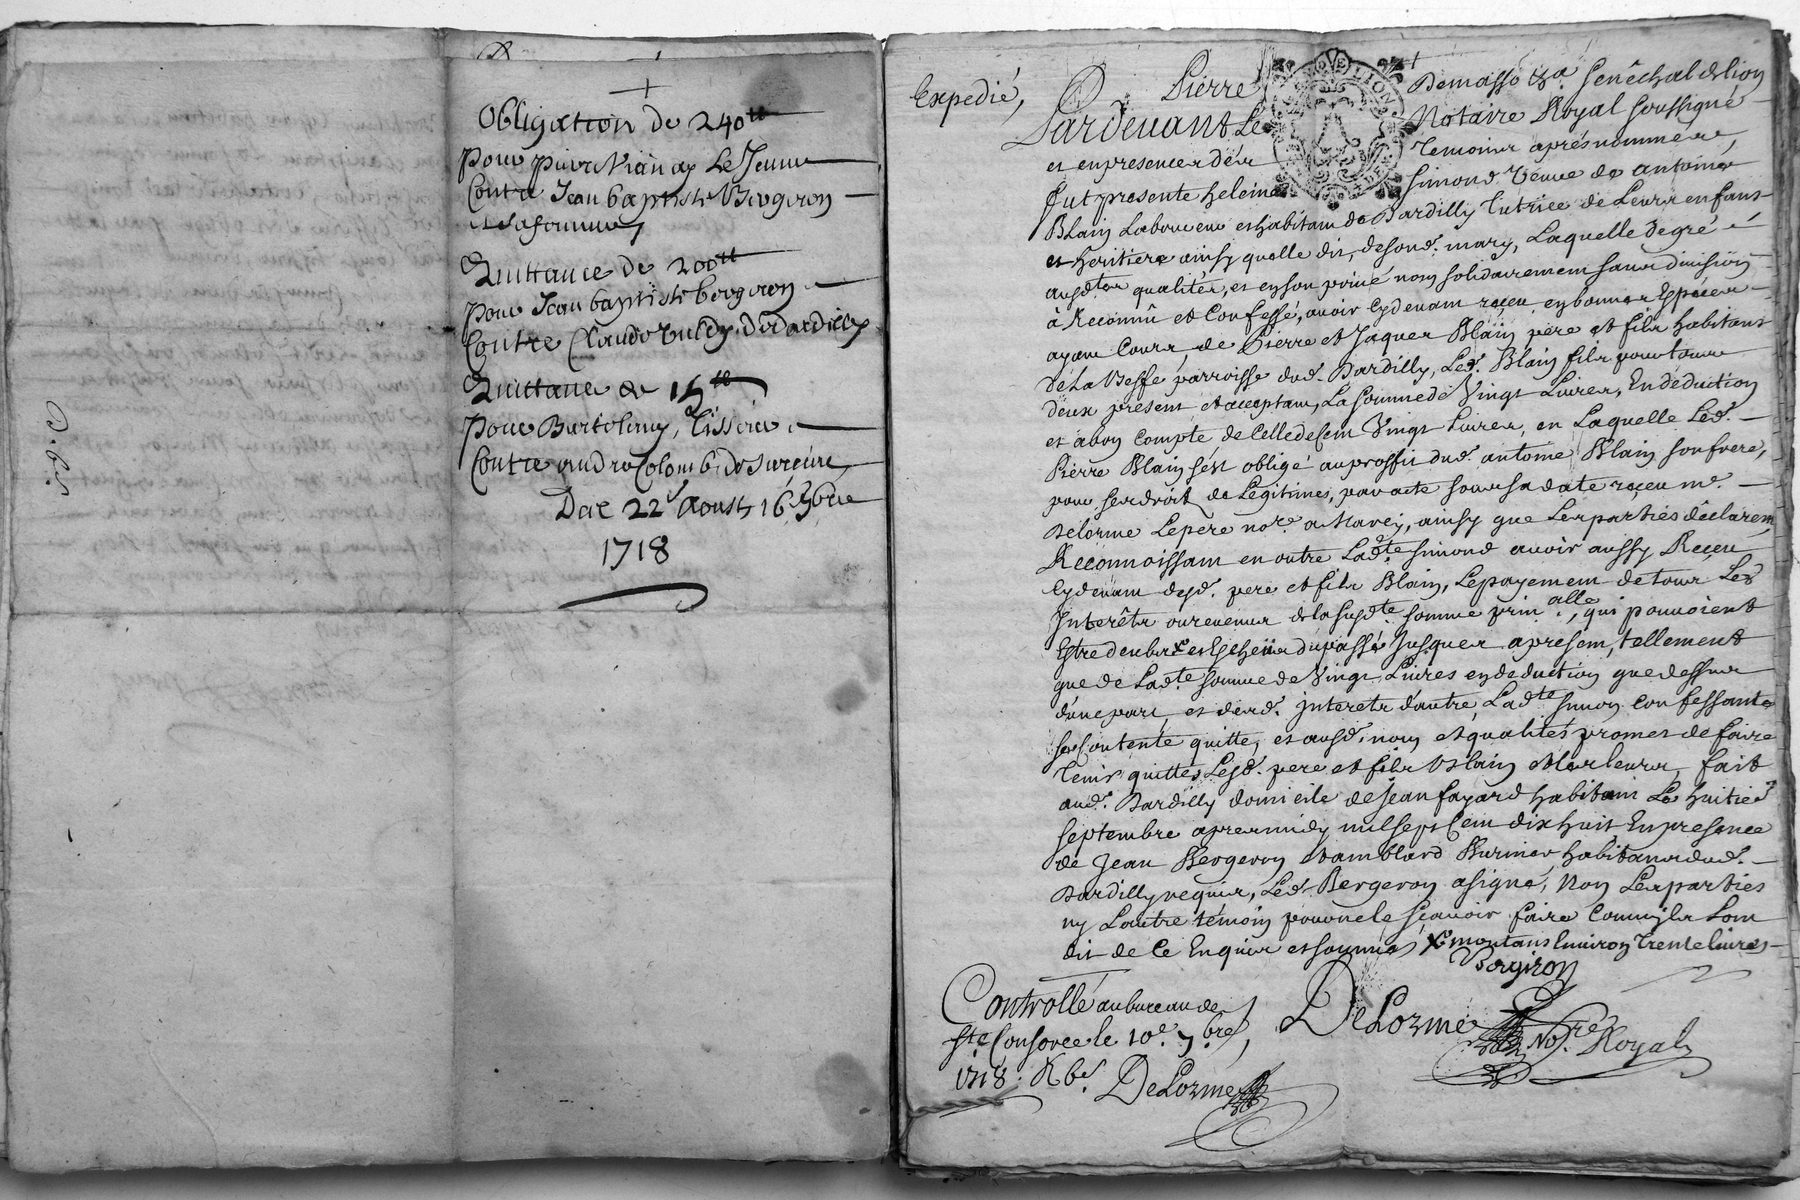 Obligation de 240tt
pour pierre Viannay Le Jeune
Contre Jean baptiste Bergeron
et sa femme
Quittance de 200tt
pour Jean baptiste bergeron
Contre Claude de dardilly
Quittance de 15tt
pour Bartelemy Tisseur
Contre andre Colomb de
Du 22e Aoust 7bre
1718
Expedié,
Pardevant Le Pierre Demasso &a Senéchal de lion
Notaire Royal soussigné
et en presence des Temoins aprés nommés,
fut presente heleine Simond Veuve de antoine
Blain Laboureur et habitant de Dardilly Tutrice de Leurs enfans
et heritiere ainsy quelle dit, de sond. mary, Laquelle de gré
ausdtes qualités, et en son privé nom solidairement sans division
à Reconnû et Confessé, avoir Cydevant reçeu en bonnes Espèces
ayant Cours, de Pierre et Jaques Blain pere et fils habitans
de La Beffe parroisse dud. Dardilly, Led. Blain fils pour tous
deux present et acceptant, La somme de Vingt Livres, En deduction
et a bon Compte de Celle de Cent Vingt Livres, en Laquelle Led.
Pierre Blain sést obligé au proffit dud. antoine Blain son frere,
pour ses droits de Legitimes, par acte sous sa date reçeu me.
Delorme Le pere nore. a Marcy, ainsy que Les parties déclarent,
Reconnoissant en outre Ladte. Simond avoir aussy Reçeu
Cydevant desd. pere et fils Blain, Le payement de tous Les
Interêts ou revenus de la susdte. somme prinalle., qui pouvoient
Estre deubs x et Echeus du passé Jusques a present, tellement
que de Ladte. somme de Vingt Livres en deduction que dessus
dune part, et desd. interets d'autre, Ladte Simon Confessante
se Contente quitte, et ausd. nom et qualités promet de faire
tenir quittes Lesd. pere et fils Blain et les leurs, fait
aud. Dardilly domicile de Jean fayard habitant Le huitie.
septembre apres midy mil sept Cent dix huit En presence
de Jean Bergeron et amblard Burnier habitans dud.
Dardilly requis, Led. Bergeron a signé, Non Les parties
ny Lautre témoin pour ne le sçavoir faire Comm'ils L'ont
dit de Ce Enquis et sommés x montans Environ Trente livres
Bergiron
Controllé au bureau de
Ste Consorce le 10e. 7.bre
1718. R 6s. DeLorme
DeLorme Nore Royal